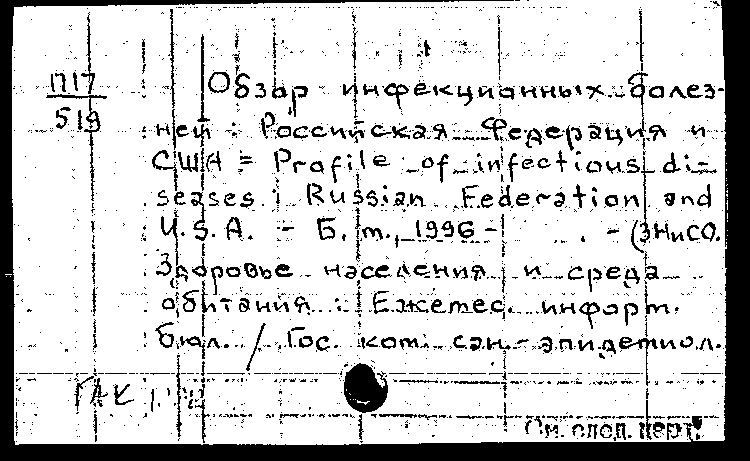 П17
519
Обзор инфекционных болез-
ней : Российская Федерация и
США = Profile of infectious di-
seases : Russian Federation and
U.S.A. - Б. м., 1996 - . - (ЗНиСО.
Здоровье населения и среда
обитания : Ежемес. информ.
бюл. / Гос. ком. сан.-эпидемиол.
ГАК
См. след. карт.